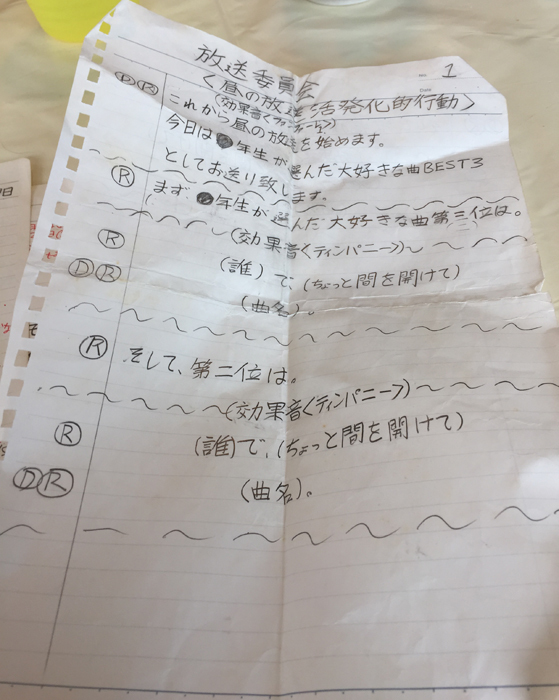 放送委員会
No. 1
Date
<昼の放送活発化的行動>
ⒹⓇ (効果音<カンチーン>)
これから昼の放送を始めます。
今日は●年生が選んだ大好きな曲BEST3
としてお送り致します。
Ⓡ まず●年生が選んだ大好きな曲第三位は。
(効果音<ティンパニー>)
Ⓡ (誰)で、(ちょっと間を開けて)
ⒹⓇ (曲名)。
Ⓡ そして、第二位は。
(効果音<ティンパニー>)
Ⓡ (誰)で、(ちょっと間を開けて)
ⒹⓇ (曲名)。
日